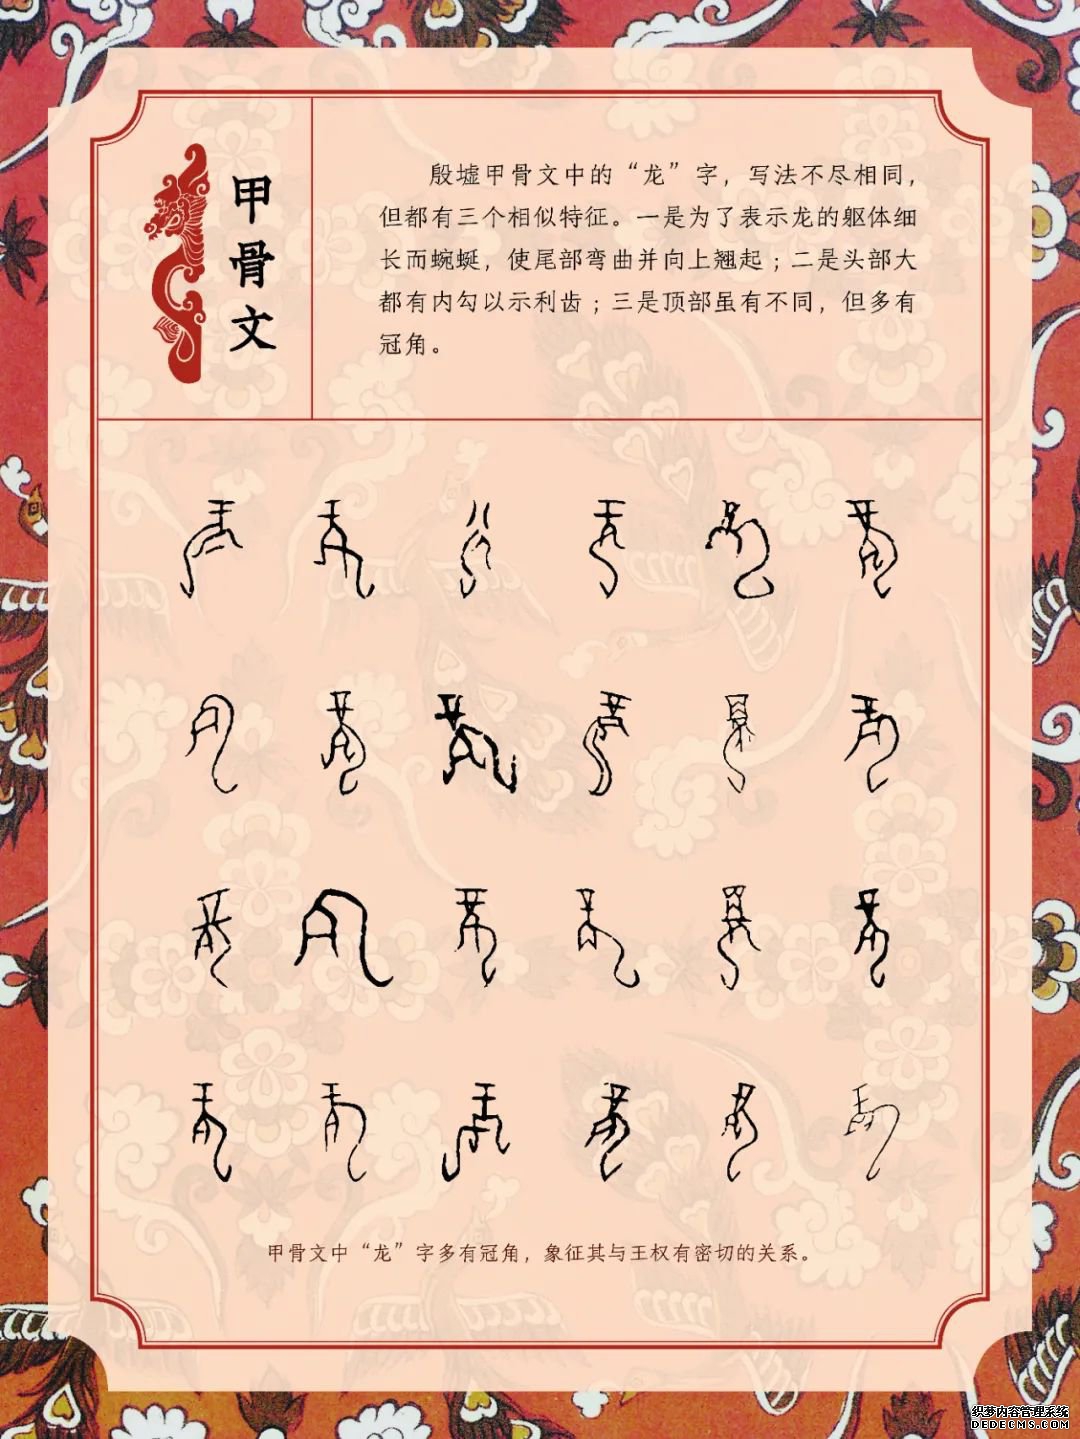 甲骨文
殷墟甲骨文中的“龙”字，写法不尽相同，
但都有三个相似特征。一是为了表示龙的躯体细
长而蜿蜒，使尾部弯曲并向上翘起；二是头部大
都有内勾以示利齿；三是顶部虽有不同，但多有
冠角。
甲骨文中“龙”字多有冠角，象征其与王权有密切的关系。
织梦内容管理系统
DEDECMS.COM